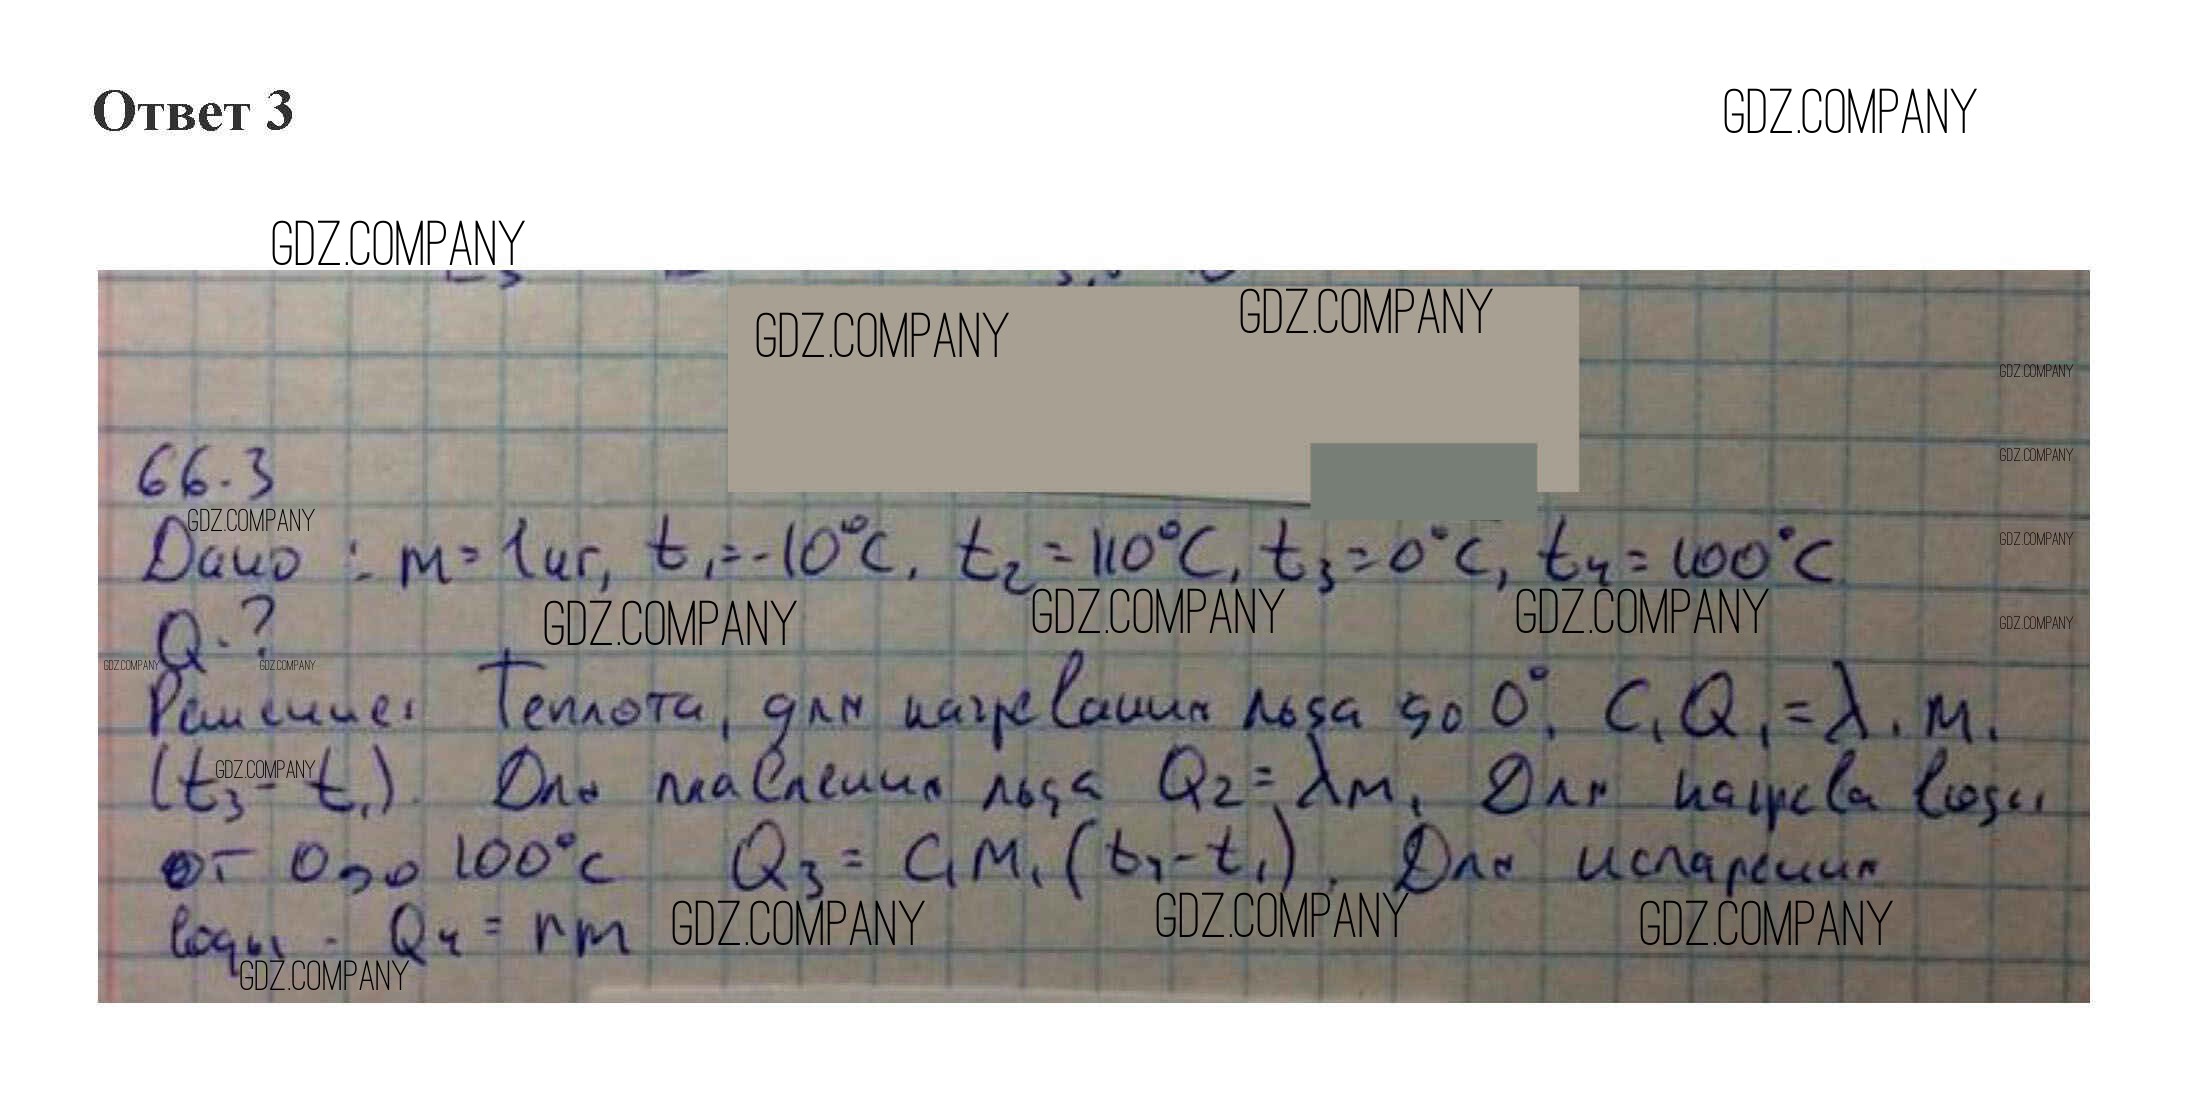 Ответ 3
GDZ.COMPANY
GDZ.COMPANY
GDZ.COMPANY
GDZ.COMPANY
GDZ.COMPANY
GDZ.COMPANY
66.3
GDZ.COMPANY
Дано: m = 1 кг, t₁ = -10°C, t₂ = 110°C, t₃ = 0°C, t₄ = 100°C
GDZ.COMPANY
GDZ.COMPANY
GDZ.COMPANY
GDZ.COMPANY
GDZ.COMPANY
Q-?
GDZ.COMPANY
GDZ.COMPANY
Решение: Теплота, для нагревания льда до 0°. C, Q₁ = λ.m.
(t₃ - t₁). Для плавления льда Q₂ = λm. Для нагрева воды
GDZ.COMPANY
от 0 до 100°C Q₃ = C₁m₁(t₄-t₁). Для испарения
воды - Q₄ = rm
GDZ.COMPANY
GDZ.COMPANY
GDZ.COMPANY
GDZ.COMPANY